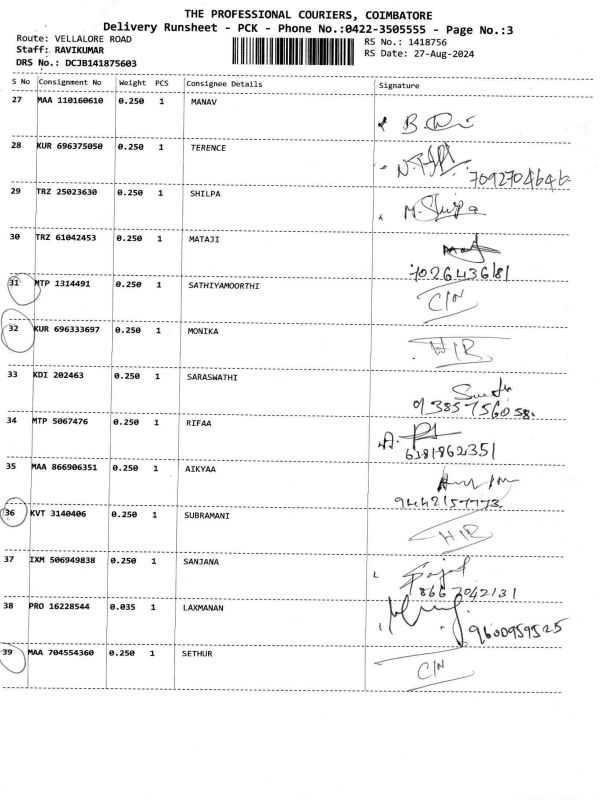 THE PROFESSIONAL COURIERS, COIMBATORE
Delivery Runsheet - PCK - Phone No.:0422-3505555 - Page No.:3
Route: VELLALORE ROAD
RS No.: 1418756
Staff: RAVIKUMAR
RS Date: 27-Aug-2024
DRS No.: DCJB141875603
S No Consignment No Weight PCS Consignee Details Signature
27 MAA 110160610 0.250 1 MANAV
28 KUR 696375050 0.250 1 TERENCE
7092704646
29 TRZ 25023630 0.250 1 SHILPA
M. Shilpa
30 TRZ 61042453 0.250 1 MATAJI
7026436181
31 MTP 1314491 0.250 1 SATHIYAMOORTHI C/N
32 KUR 696333697 0.250 1 MONIKA H/R
33 KDI 202463 0.250 1 SARASWATHI
34 MTP 5067476 0.250 1 RIFAA
6281862351
35 MAA 866906351 0.250 1 AIKYAA
9442157773
36 KVT 3140406 0.250 1 SUBRAMANI H/R
37 IXM 506949838 0.250 1 SANJANA
8667042131
38 PRO 16228544 0.035 1 LAXMANAN
9600959525
39 MAA 704554360 0.250 1 SETHUR C/N